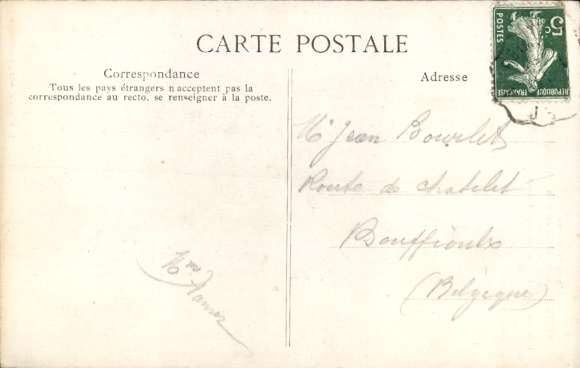 CARTE POSTALE
Correspondance
Tous les pays étrangers n'acceptent pas la
correspondance au recto, se renseigner à la poste.
Mme
Adresse
5c
POSTES
REPUBLIQUE FRANÇAISE
Mr Jean Bourlet
Route de Chatelet
Bouffioulx
(Belgique)